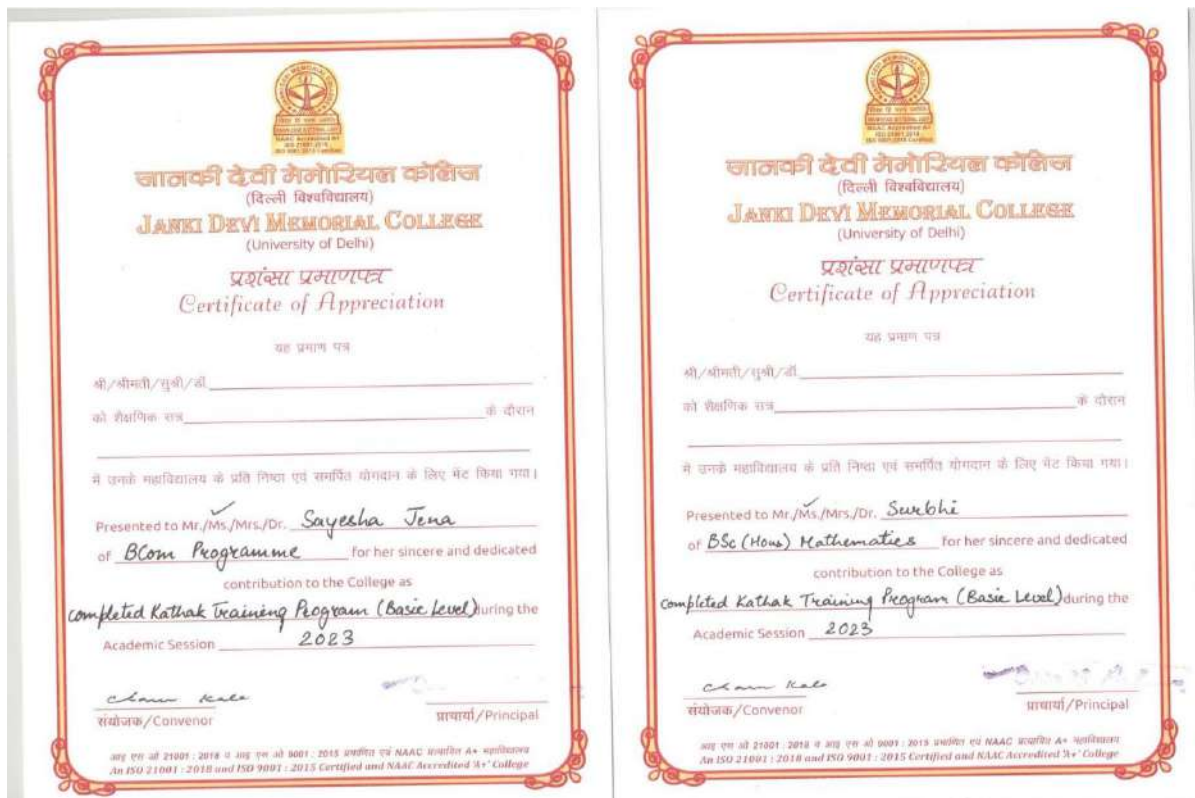 जानकी देवी मेमोरियल कॉलेज
(दिल्ली विश्वविद्यालय)
JANKI DEVI MEMORIAL COLLEGE
(University of Delhi)
प्रशंसा प्रमाणपत्र
Certificate of Appreciation
यह प्रमाण पत्र
श्री/श्रीमती/सुश्री/डॉ.
को शैक्षणिक सत्र के दौरान
में उनके महाविद्यालय के प्रति निष्ठा एवं समर्पित योगदान के लिए भेंट किया गया।
Presented to Mr./Ms./Mrs./Dr. Sayesha Jena
of BCom Programme for her sincere and dedicated
contribution to the College as
completed Kathak Training Program (Basic Level) during the
Academic Session 2023
संयोजक/Convenor प्राचार्या/Principal
आइ एस ओ 21001 : 2018 व आइ एस ओ 9001 : 2015 प्रमाणित एवं NAAC प्रत्यायित A+ महाविद्यालय
An ISO 21001 : 2018 and ISO 9001 : 2015 Certified and NAAC Accredited 'A+' College
जानकी देवी मेमोरियल कॉलेज
(दिल्ली विश्वविद्यालय)
JANKI DEVI MEMORIAL COLLEGE
(University of Delhi)
प्रशंसा प्रमाणपत्र
Certificate of Appreciation
यह प्रमाण पत्र
श्री/श्रीमती/सुश्री/डॉ.
को शैक्षणिक सत्र के दौरान
में उनके महाविद्यालय के प्रति निष्ठा एवं समर्पित योगदान के लिए भेंट किया गया।
Presented to Mr./Ms./Mrs./Dr. Surbhi
of BSc (Hons) Mathematics for her sincere and dedicated
contribution to the College as
completed Kathak Training Program (Basic Level) during the
Academic Session 2023
संयोजक/Convenor प्राचार्या/Principal
आइ एस ओ 21001 : 2018 व आइ एस ओ 9001 : 2015 प्रमाणित एवं NAAC प्रत्यायित A+ महाविद्यालय
An ISO 21001 : 2018 and ISO 9001 : 2015 Certified and NAAC Accredited 'A+' College